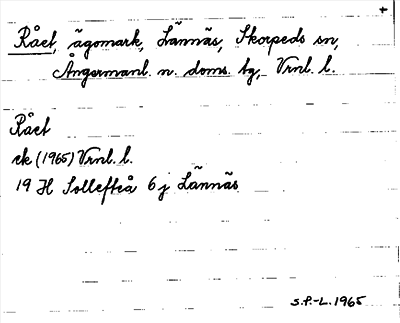 +
Rået, ägomark, Lännäs, Skorpeds sn,
Ångermanl. n. doms. tg, Vrnl. l.
Rået
ek (1965) Vrnl. l.
19 H Sollefteå 6 j Lännäs
S.P.-L. 1965